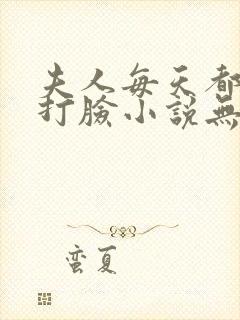 夫人每天都
打脸小說無
蛮夏